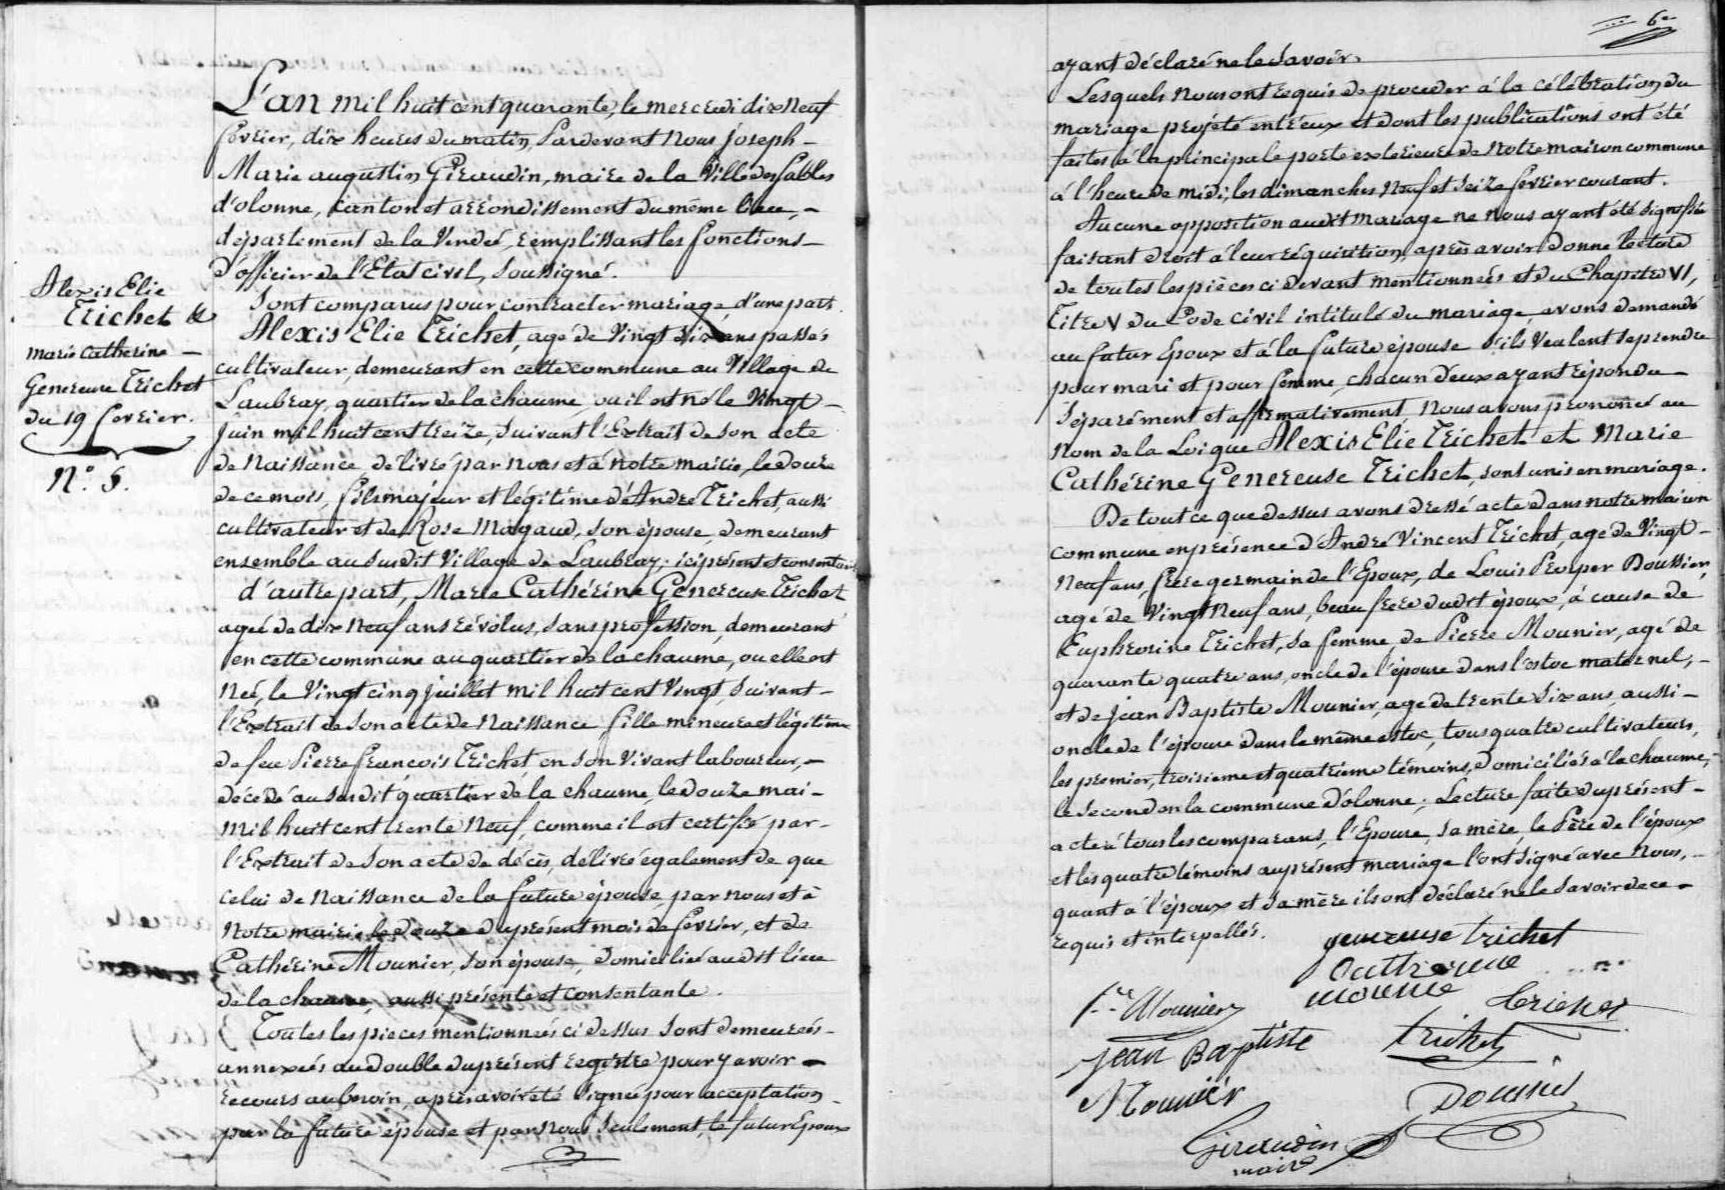 Alexis Elie
Trichet &
Marie Catherine —
Genereuse Trichet
du 19 fevrier.
N.° 6.
L'an mil huit cent quarante, le mercredi dix neuf
fevrier, dix heures du matin, Pardevant Nous Joseph –
Marie augustin Giraudin, maire de la Ville des Sables
d'olonne, canton et arrondissement du même lieu, –
département de la Vendée, remplissant les fonctions –
d'officier de l'Etat civil, soussigné.
Sont comparus pour contracter mariage, d'une part
Alexis Elie Trichet, agé de Vingt six ans passés
cultivateur, demeurant en cette commune au Village de
Laubray, quartier de la chaume, ou il est né le Vingt –
Juin mil huit cent treize, suivant l'Extrait de son acte
de Naissance délivré par nous et à notre mairie, le douze
de ce mois, fils majeur et légitime d'André Trichet, aussi
cultivateur et de Rose Magaud, son épouse, demeurant
ensemble au susdit Village de Laubray; ici présents et consentants
d'autre part, Marie Cathérine Genereuse Trichet
agée de dix Neuf ans révolus, sans profession, demeurant
en cette commune au quartier de la chaume, ou elle est
Née, le Vingt cinq juillet mil huit cent Vingt, suivant –
l'Extrait de son acte de Naissance, fille mineure et légitime
de feu Pierre François Trichet, en son Vivant laboureur, –
décédé au susdit quartier de la chaume, le douze mai –
Mil huit cent trente Neuf, comme il est certifié par –
l'Extrait de son acte de décès, délivré également de que
celui de Naissance de la future épouse, par nous et à
Notre mairie le douze du présent mois de fevrier, et de
Cathérine Mounier, son épouse, domiciliée audit lieu
de la chaume, aussi présente et consentante.
Toutes les pieces mentionnées ci dessus sont demeurées –
annexées au double du présent registre pour y avoir –
recours au besoin, après avoir été signées pour acceptation –
par la future épouse et par nous seulement, le futur Epoux
6e
ayant déclaré ne le savoir.
Lesquels nous ont requis de proceder à la célébration du
mariage projeté entr'eux et dont les publications ont été
faites à la principale porte exterieure de notre maison commune
à l'heure de midi, les dimanches Neuf et Seize fevrier courant.
Aucune opposition audit mariage ne nous ayant été signifiée
faisant droit à leur réquisition, après avoir donné lecture
de toutes les pièces ci devant mentionnées et du Chapitre VI,
Titre V du Code civil intitulé du mariage, avons demandé
au futur Epoux et à la future épouse s'ils Veulent se prendre
pour mari et pour femme, chacun d'eux ayant répondu –
séparément et affirmativement, Nous avons prononcé au
Nom de la Loi que Alexis Elie Trichet et Marie
Cathérine Genereuse Trichet, sont unis en mariage.
De tout ce que dessus avons dressé acte dans notre maison
commune en présence d'André Vincent Trichet, agé de Vingt –
Neuf ans, frere germain de l'Epoux, de Louis Prosper Doussier,
agé de Vingt Neuf ans, beau frere dudit époux, à cause de
Euphrosine Trichet, sa femme de Pierre Mounier, agé de
quarante quatre ans, oncle de l'épouse dans l'estoc maternel, –
et de Jean Baptiste Mounier, agé de trente six ans, aussi –
oncle de l'épouse dans le même estoc, tous quatre cultivateurs,
les premier, troisieme et quatrieme témoins, domiciliés à la chaume,
le second en la commune d'olonne; Lecture faite du présent –
acte à tous les comparans, l'Epouse, sa mère, le Père de l'époux
et les quatre témoins au présent mariage l'ont signé avec Nous, –
quant à l'époux et sa mère ils ont déclaré ne le savoir de ce –
requis et interpellés.
genereuse trichet
Catherine
mounie
Pre Mounier
trichet
jean Baptiste
trichet
Mounier
Doussier
Giraudin
maire